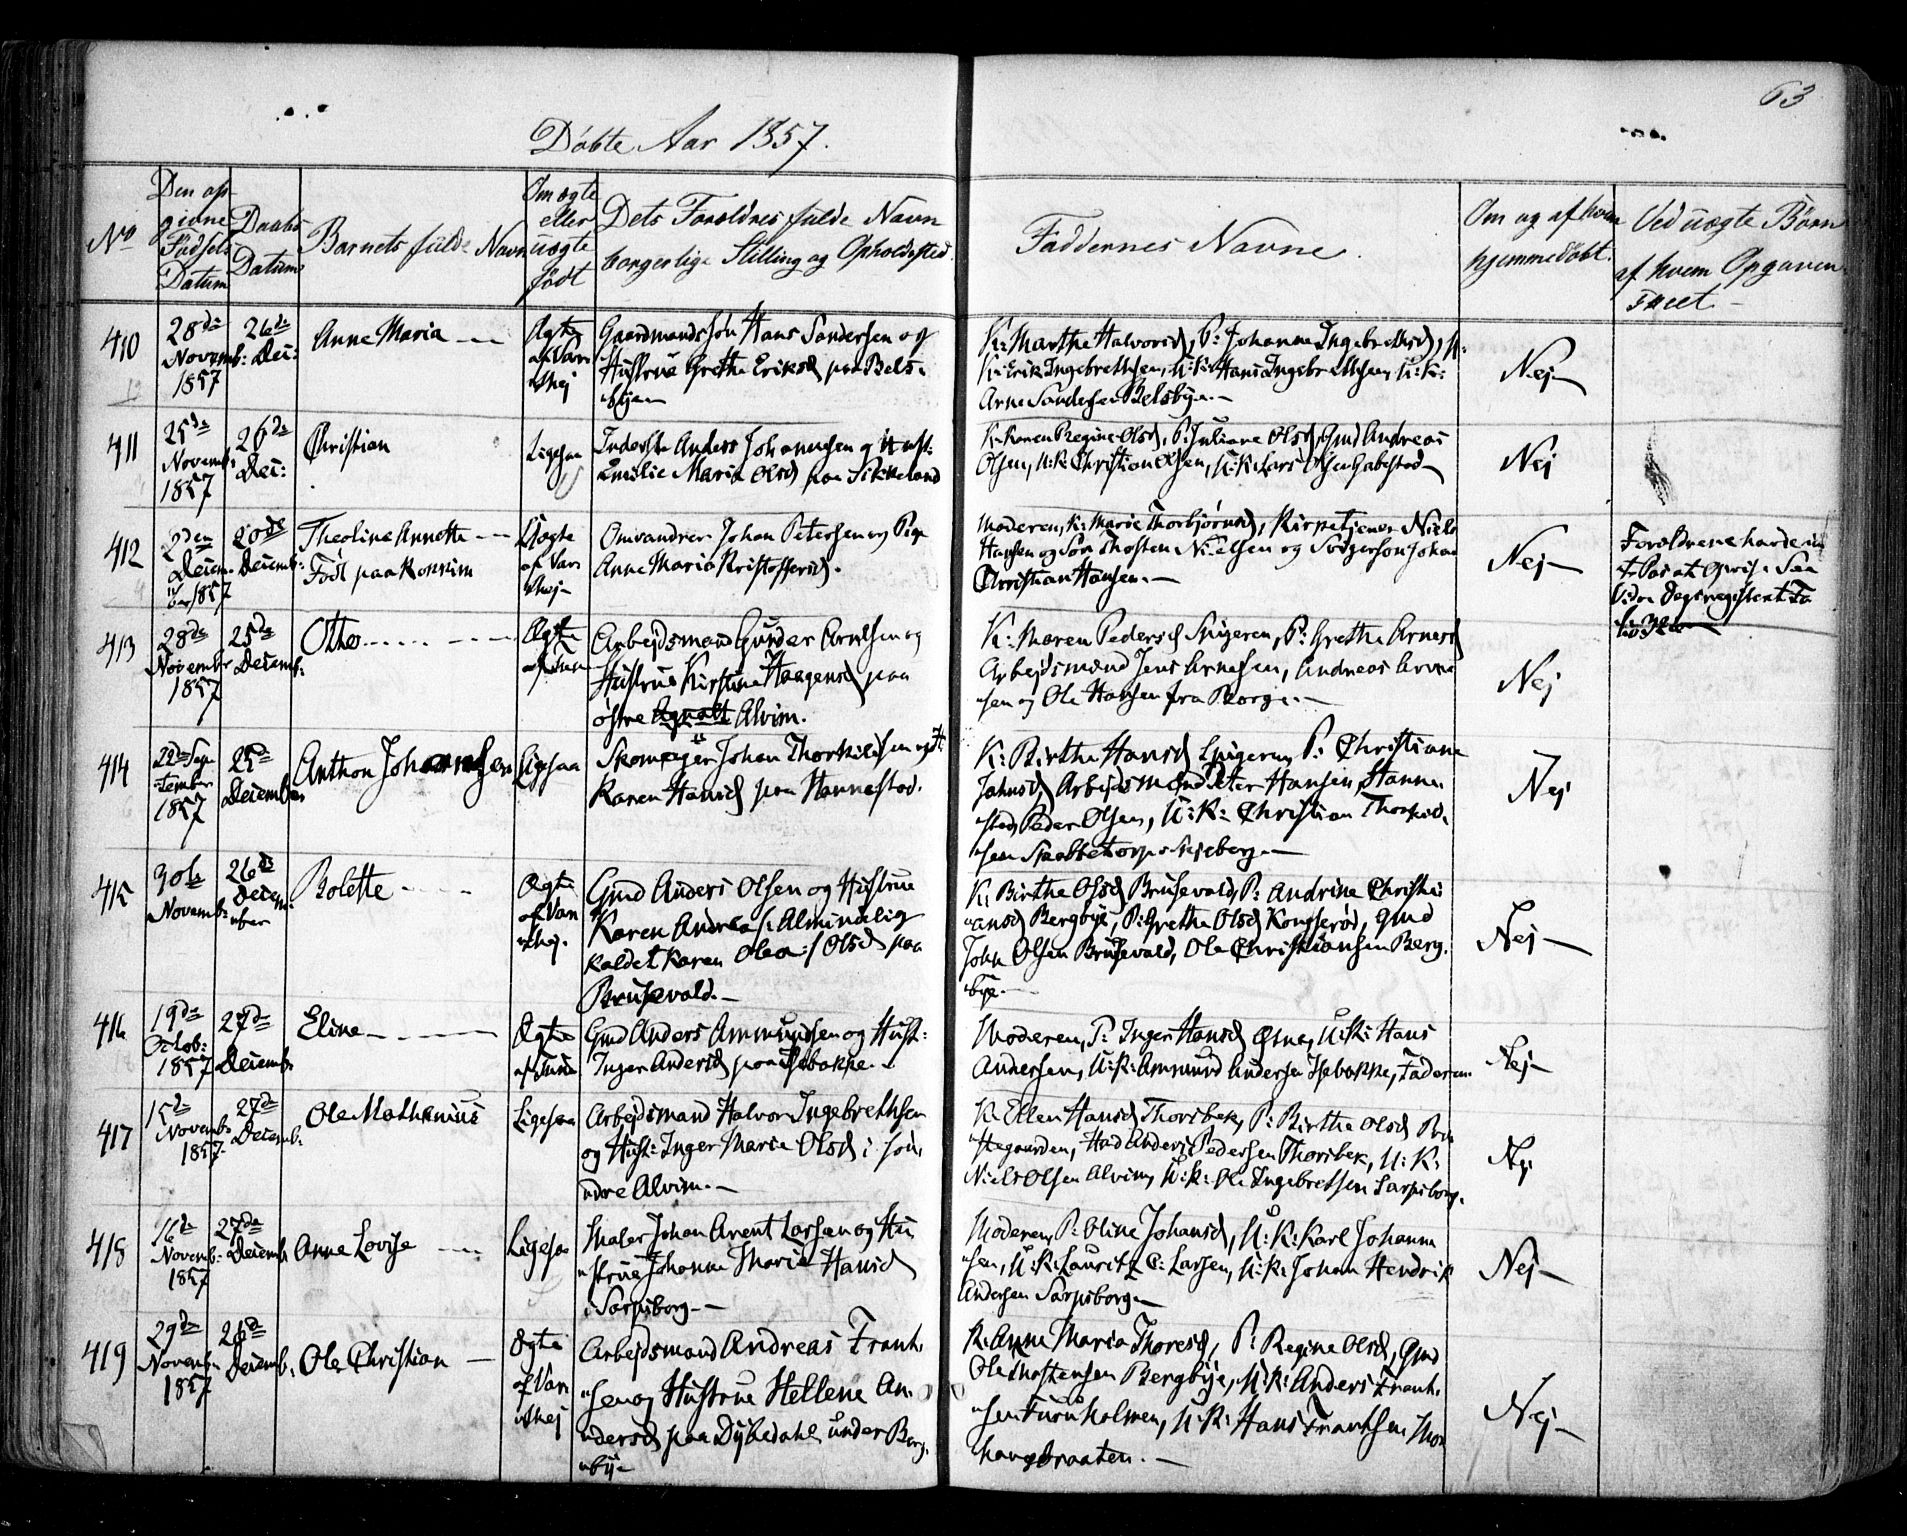 63
Døbte Aar 1857.
No
Den op-
givne
Fødsels
Datum
Daabs
Datum
Barnets fulde Navn
Om ægte
eller
uægte
født
Dets Forældres fulde Navn
borgerlige Stilling og Opholdsted.
Faddernes Navne.
Om og af hvem
hjemmedøbt.
Ved uægte Børn
af hvem Opgaven
skeet
410
28de
Novemb:
1857
26de
Dec:
Anne Maria
Ægte
af Var-
Gaardmandssøn Hans Sandersen og
Hustrue Grethe Eriksd paa Bels-
bye
K: Marthe Halvorsd, P: Johanne Ingebrethsd,
Erik Ingebrethsen, U:K: Hans Ingebrethsen, U:K:
Arne Sandersen Belsbye
Nej
411
25de
Novemb:
1857
26de
Dec:
Christian
Ligesaa
Inderste Anders Johannesen og Hust:
Emilie Maria Olsd paa
K: Karen Regine Olsd, P: Juliane Olsd, Gmd Andreas
Olsen, U:K: Christian Olsen, U:K: Lars Olsen
Nej
412
2den
Decem-
ber 1857
20de
Decemb:
Theoline Annette
Født paa
Uægte
af Var-
Omvandrer Johan Petersen og Pige
Anne Maria Kristoffersd.
Moderen, K: Marie Thorbjørnsd, Kirketjener Niels
Hansen og Søn Thosten Nielsen og Johan
Christian Hansen.
Nej
Forældrene havde
413
28de
Novembr
1857
25de
Decemb:
Otho
Ægte
Arbejdsmand Gunder Arnesen og
Hustrue Kirstine Haagensd paa
østre Alvim.
K: Maren Pedersd Spigeren, P: Grethe Arnesd
Arbejdsmænd Jens Arnesen, Andreas Arne
sen og Ole Hansen fra Borge.
Nej
414
22de Sep
tember
1857
25de
December
Anthon Johannesen
Ligesaa
Skomager Johan Thorkildsen og H:
Karen Hansd paa Hannestad.
K: Birthe Hansd Spigeren, P: Christiane
Johnsd, Arbejdsmænd Peter Hansen, Hanne
stad, Peder Olsen, U:K: Christian Thorkild-
sen Skjeberg
Nej
415
30te
Novemb:
26de
Decem-
ber
Bolette
Ægte
af Var
Gmd Anders Olsen og Hustrue
Karen Andrea /: Almindelig
kaldet Karen Olea :/ Olsd paa
Brusevold.
K: Birthe Olsd Brusevold, P: Andrine Christi
ansd Bergbye, P: Grethe Olsd Kongsrød, Gmd
John Olsen Brusevold, Ole Christiansen Berg-
bye.
Nej
416
19de
Octob:
1857
27de
Decemb:
Eline
Ægte
af Tune
Gmd Anders Ammundsen og Hust:
Inger Andersd paa Isebakke.
Moderen, P: Inger Hansd U:K: Hans
Andersen, U:K: Ammund Andersen Isebakke, Faderen
Nej
417
15de
Novemb:
1857
27de
Decemb:
Ole Mathenius
Ligesaa
Arbejdsmand Halvor Ingebrethsen
og Hust: Inger Marie Olsd i søn-
dre Alvim.
K: Ellen Hansd Thorsbek, P: Birthe Olsd
Anders Pedersen Thorsbek, U:K:
Niels Olsen Alvim, U:K: Ole Ingebretsen Sarpsborg.
Nej
418
16de
Novemb:
1857
27de
Decemb
Anne Lovise
Ligesaa
Maler Johan Arent Larsen og Hu
strue Johanne Marie Hansd
i Sarpsborg.
Moderen, P: Oline Johansd, U:K: Karl Johann
sen, U:K: Lauritz C: Larsen, U:K: Johan Hendrik
Andersen Sarpsborg.
Nej
419
29de
Novemb:
1857
26de
Decemb:
Ole Christian
Ægte
af Var-
Arbejdsmand Andreas Frant-
sen og Hustrue Hellene An-
dersd paa Dybedahl under Berg-
bye
K: Anne Maria Thoresd, P: Regine Olsd, Gmd
Ole Thostensen Bergbye, U:K: Anders Frant-
sen Furuholmen, U:K: Hans Frantsen
Nej